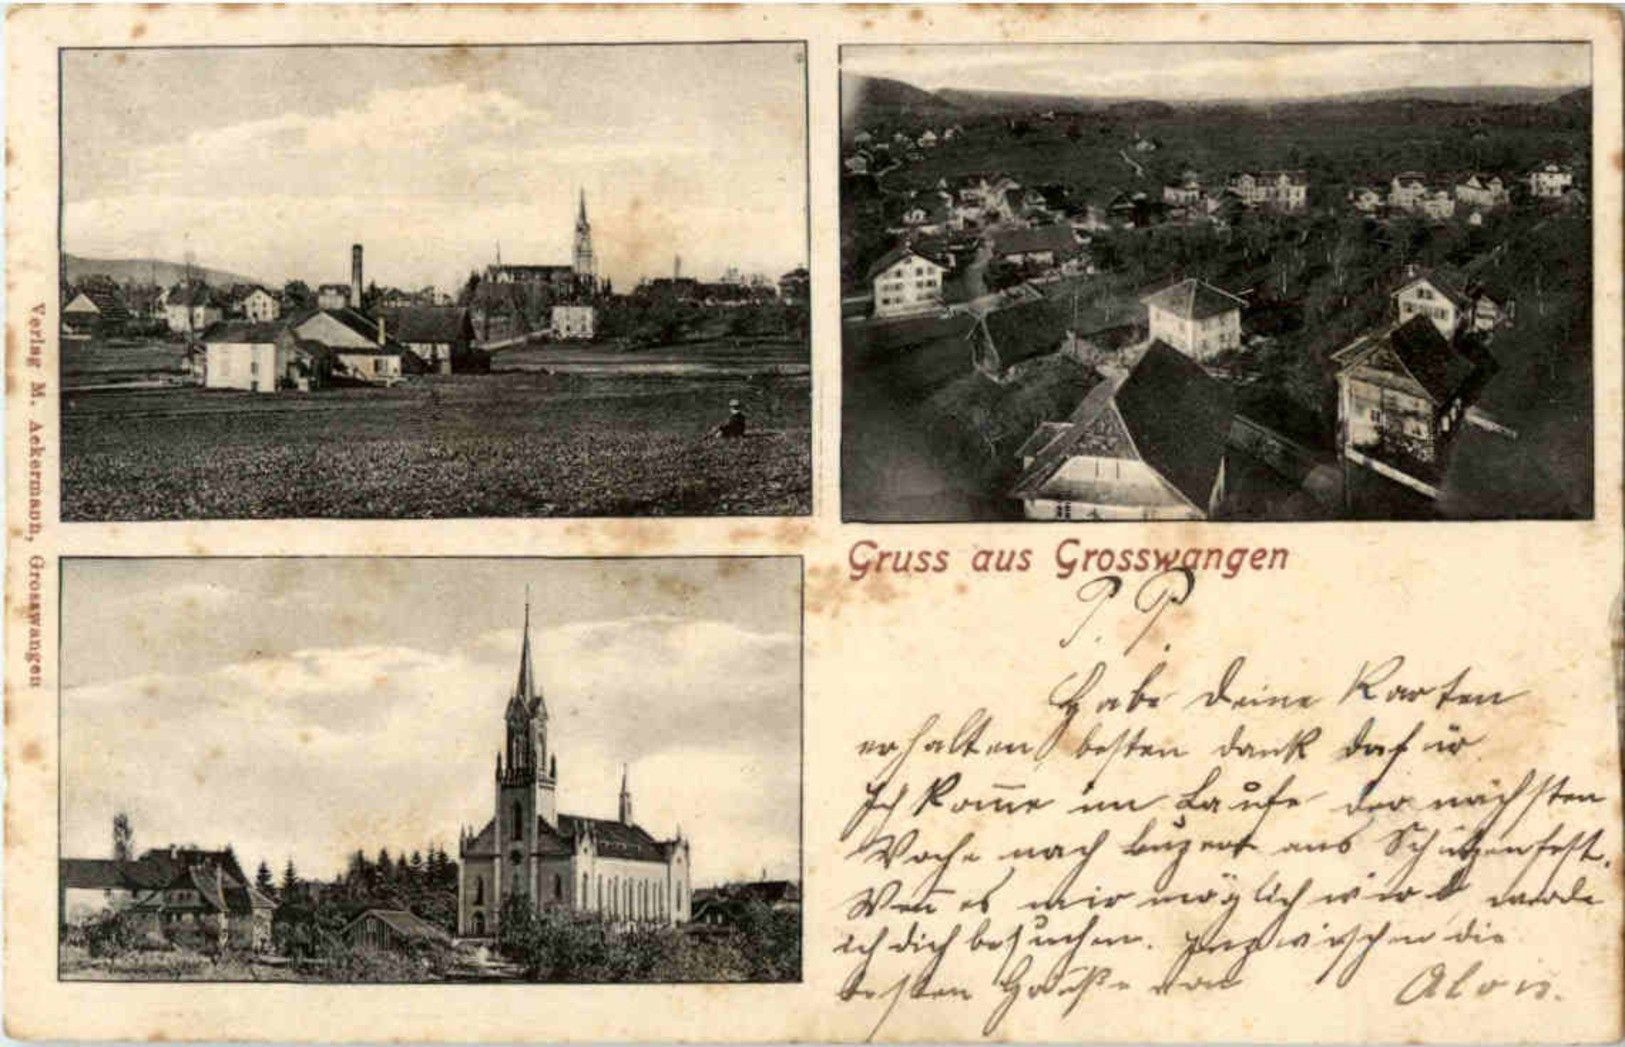 Verlag M. Ackermann, Grosswangen
Gruss aus Grosswangen
P. P.
Habe deine Karten
erhalten besten dank dafür
Ich kom̅e im Laufe der nächsten
Woche nach Luzern ans Schützenfest.
Wen̅ es mir möglich wird werde
ich dich besuchen. Inzwischen die
besten Grüße von
Alois.